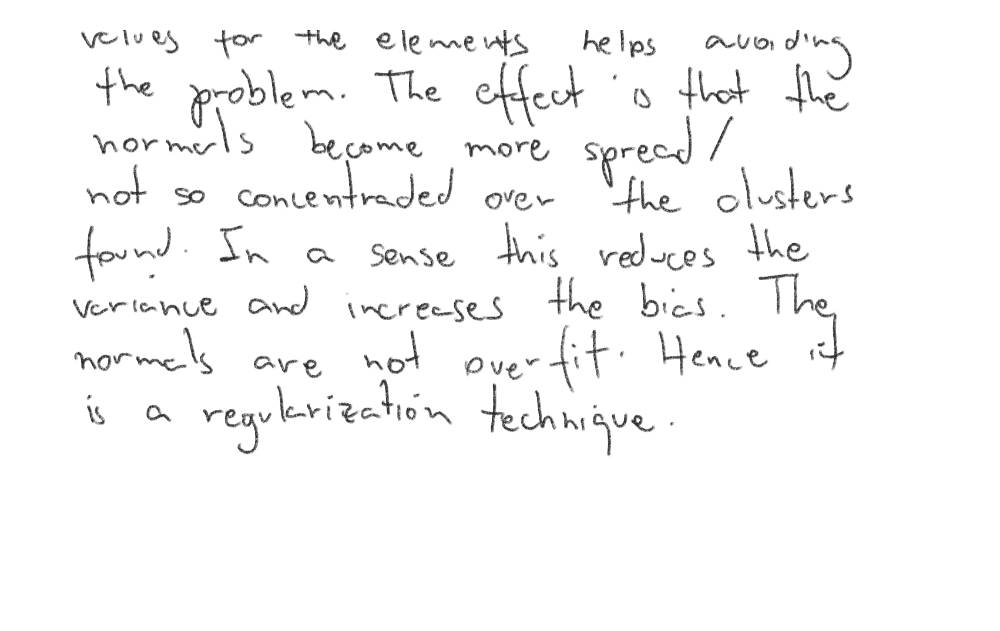 values for the elements helps avoiding
the problem. The effect is that the
normals become more spread/
not so concentraded over the clusters
found. In a sense this reduces the
variance and increases the bias. The
normals are not overfit. Hence it
is a regularization technique.